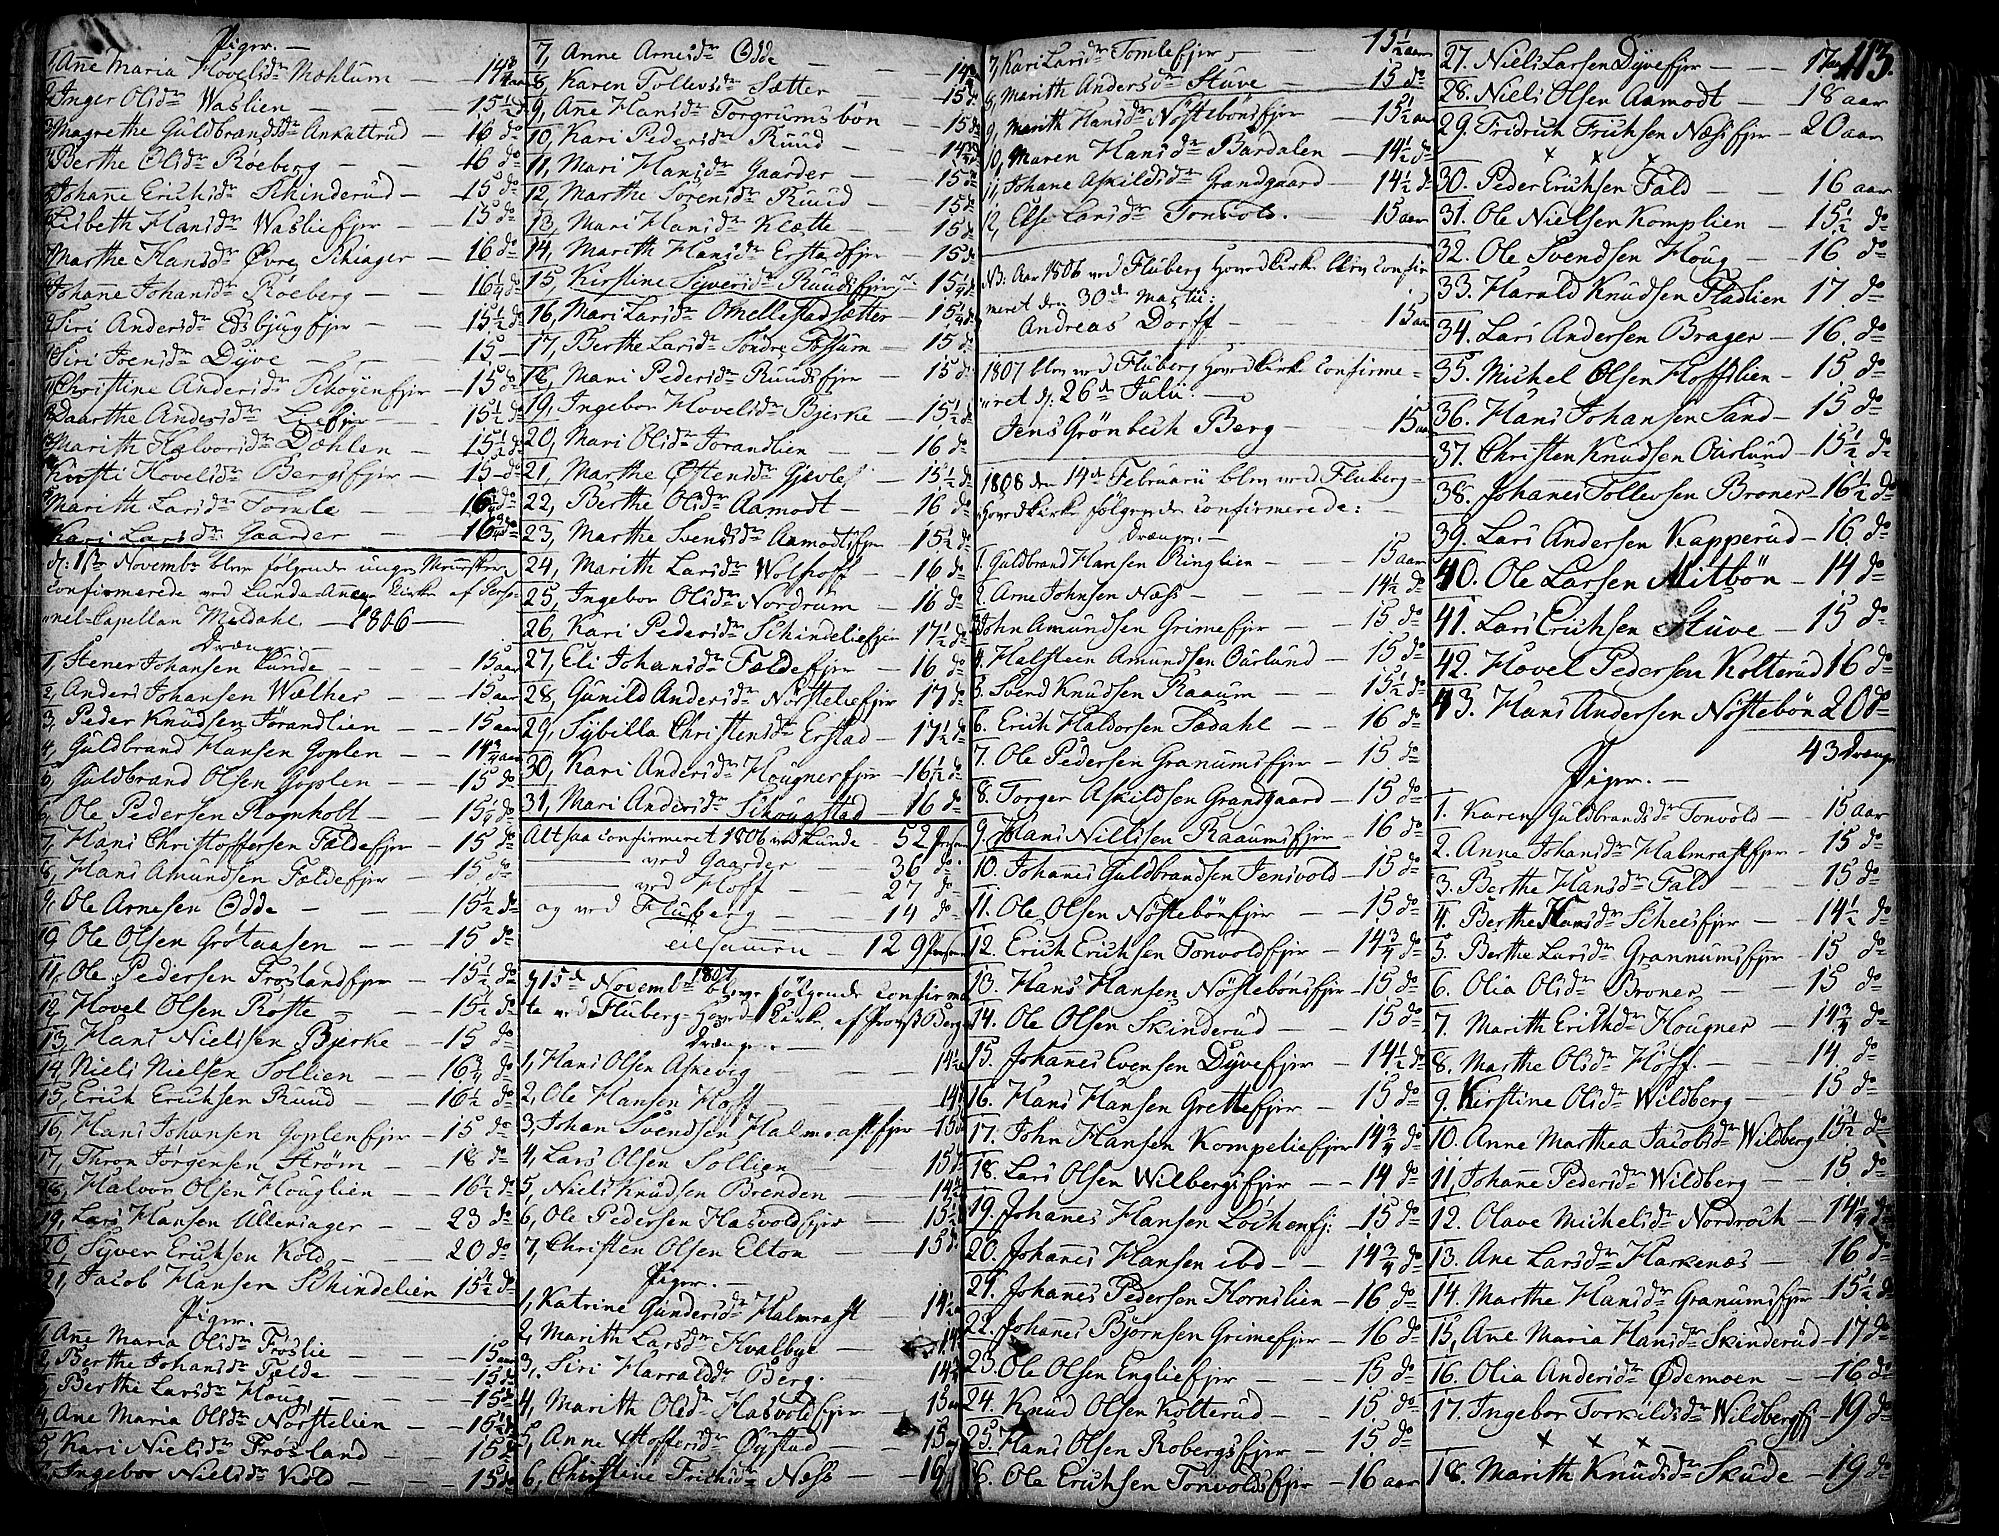 Piger. —
1, Ane Maria Hovelsdr Mohlum — 14 3/4 aar
2, Inger Olsdr Waslien — 15 1/2 do
3, Magrethe Guldbrandsdr Ankattrud — 16 do
4, Berthe Olsdr Roeberg — 16 do
5, Johane Erichsdr Schinderud — 15 do
6, Lisbeth Hansdr Wasliefjer — 15 do
7, Marthe Hansdr Øvre Schiager — 16 do
8, Johane Johansdr Roeberg — 16 1/4 do
9, Siri Andersdr Edsbjugfjer — 15 1/2 do
10, Siri Joensdr Dyve — 15 —
11, Christine Andersdr Schøyenfjer — 15 do
12, Daarthe Andersdr Liefjer — 15 1/2 do
13, Marith Halvorsdr Dæhlen — 15 1/2 do
14, Kirsti Hovelsdr Bergsfjer — 15 do
15, Marith Larsdr Tomle — 16 1/2 do
16, Kari Larsdr Gaarder — 16 do
d: 1ste Novembr blev følgende unge Mennesker
confirmerede ved Lunde Annex Kirke af Perso-
nel-Capellan Meldahl. — 1806 —
Drænge —
1, Stener Johansen Lunde — 15 aar
2, Anders Johansen Wælher — 15 aar
3, Peder Knudsen Jørandlien — 15 aar
4, Guldbrand Hansen Goplen — 14 3/4 aar
5, Guldbrand Olsen Goplen — 15 do
6, Ole Pedersen Rognholt — 15 1/4 do
7, Hans Christoffersen Faldefjer — 15 do
8, Hans Amundsen Faldefjer — 15 do
9, Ole Arnesen Odde — 15 1/2 do
10, Ole Olsen Grøtaasen — 15 do
11, Ole Pedersen Frøslandfjer — 15 1/2 do
12, Hovel Olsen Røste — 15 1/2 do
13, Hans Nielsen Bjerke — 15 do
14, Niels Nielsen Sollien — 16 3/4 do
15, Erich Erichsen Ruud — 16 1/2 do
16, Hans Johansen Goplenfjer — 15 do
17, Thron Jørgensen Strøm — 18 do
18, Halvor Olsen Houglien — 16 1/2 do
19, Lars Hansen Ullensager — 23 do
20, Syver Erichsen Kold — 20 do
21, Jacob Hansen Schindelien 15 1/2 do
Piger. —
1, Ane Maria Olsdr Frøslie — 15 aar
2, Berthe Johansdr Falde — 15 do
3, Berthe Larsdr Houg — 15 do
4, Ane Maria Olsdr Nørstelien — 15 1/2 do
5, Kari Nielsdr Frøsland — 15 do
6, Ingebor Nielsdr Kold — 15 do
7, Anne Arnesdr Odde — 14 1/2
8, Karen Tollevsdr Sætter — 15 do
9, Ane Hansdr Torgrumsbøn — 15 do
10, Kari Pedersdr Ruud — 14 3/4
11, Mari Hansdr Gaarder — 15 do
12, Marthe Sorensdr Ruud — 15 do
13, Mari Hansdr Klætte — 15 do
14, Marith Hansdr Erstadfjer — 15 do
15, Kirstine Syversdr Ruudsfjer — 15 1/4 do
16, Mari Larsdr Omellestadsætter — 15 1/4 do
17, Berthe Larsdr Søndre Fossum — 15 do
18, Mari Pedersdr Ruudsfjer — 15 do
19, Ingebor Hovelsdr Bjerke — 15 1/2 do
20, Mari Olsdr Jorandlien — 16 do
21, Marthe Østensdr Gjevles — 15 1/2 do
22, Berthe Olsdr Aamodt — 16 do
23, Marthe Svensdr Aamodtsfjer — 15 1/2 do
24, Marith Larsdr Wolhoff — 16 do
25, Ingebor Olsdr Nordrum — 16 do
26, Kari Pedersdr Schindeliefjer 17 1/2 do
27, Eli Johansdr Faldefjer — 16 do
28, Gunild Andersdr Nørsteliefjer 17 do
29, Sybilla Christensdr Erstad — 17 1/2 do
30, Kari Andersdr Hougnerfjer — 16 1/2 do
31, Mari Andersdr Schougstad — 16 do
Altsaa confirmeret 1806 ved Lunde — 52 Personer
ved Gaarder — 36 do
ved Hoff — 27 do
og ved Fluberg — 14 do
tilsamen — 129 Personer
d 15de Novembr 1807 bleve følgende confirme-
te ved Fluberg Hovedkirke af Provst Berg
Drænge —
1, Hans Olsen Askevig — 14 1/2
2, Ole Hansen Hoff — 14 1/2
3, Johan Svendsen Halmrastfjer — 15 do
4, Lars Olsen Sollien — 15 do
5, Niels Knudsen Brenden — 14 1/2
6, Ole Pedersen Hasvoldfjer — 15 1/2
7, Christen Olsen Elton — 15 do
Piger. —
1, Katrine Gundersdr Halmrast — 14 1/2 a
2, Marith Larsdr Hvalbye — 14
3, Siri Harraldsdr Berg — 14
4, Marith Olsdr Hasvoldsfjer — 15 aar
5, Anne Hoffersdr Øystad — 15
6, Christine Frichsdr Næss — 16
7, Kari Larsdr Tomlefjer — 15 1/2 aar
8, Marith Andersdr Stuve — 15 do
9, Marith Hansdr Nøstebønsfjer 15 1/2 aar
10, Maren Hansdr Bardalen — 14 1/2 do
11, Johane Askildsdr Grandgaard — 14 1/2 do
12, Else Larsdr Tonvold — 15 aar
NB: Aar 1806 ved Fluberg Hovedkirke blev confir-
meret den 30de Martii:
Andreas Dorff — 15 aar
1807 blev ved Fluberg Hovedkirke confirme-
ret d: 26de Julii: —
Jens Grønbech Berg — 15 aar
1808 den 14de Februarii blev ved Fluberg-
Hovedkirke følgende confirmerede: —
Drænge. —
1. Guldbrand Hansen Ringlien — 15 aar
2. Arne Johnsen Næss — 14 1/2 do
3. John Amundsen Grimefjer — 15 do
4. Halsteen Amundsen Ourlund — 15 do
5. Svend Knudsen Raaum — 15 1/2 do
6. Erich Haldorsen Sædahl — 16 do
7. Ole Pedersen Granumsfjer — 15 do
8. Torger Askildsen Grandgaard — 15 do
9. Hans Nillsen Raaumsfjer — 16 do
10. Johanes Guldbrandsen Jensvold — 15 do
11. Ole Olsen Nøstebönfjer — 15 do
12. Erich Erichsen Tonvoldsfjer — 14 3/4 do
13. Hans Hansen Nøstebønsfjer — 15 do
14. Ole Olsen Skinderud — 15 do
15. Johanes Evensen Dyvefjer — 14 1/2 do
16. Hans Hansen Grettefjer — 15 do
17. John Hansen Kompeliefjer 14 3/4 do
18. Lars Olsen Wilbergsfjer — 14 do
19. Johanes Hansen Løchenfj: — 15 do
20. Johanes Hansen ibd — 14 3/4 do
21. Johanes Pedersen Hornslien — 16 do
22. Johanes Bjørnsen Grimefjer — 16 do
23. Ole Olsen Engliefjer — 15 do
24. Knud Olsen Kolterud — 15 do
25. Hans Olsen Robergsfjer — 15 do
26. Ole Erichsen Tonvoldsfjer — 16 aar
113.
27. Niels Larsen Dyvefjer — 17 aar
28. Niels Olsen Aamodt — 18 aar
29. Fridrich Frichsen Næssfjer — 20 aar
x x x
30. Peder Erichsen Fald — 16 aar
31. Ole Nielsen Komplien — 15 1/2 do
32. Ole Svendsen Houg — 16 do
33. Harald Knudsen Fladlien 17 do
34. Lars Andersen Brager — 16 do
35. Michel Olsen Hoffslien — 15 do
36. Hans Johansen Sand — 15 do
37. Christen Knudsen Ourlund — 15 1/2 do
38. Johanes Tollevsen Broner — 16 1/2 do
39. Lars Andersen Kapperud — 16 do
40. Ole Larsen Mitbøn — 14 do
41. Lars Erichsen Stuve — 15 do
42. Hovel Pedersen Kolterud 16 do
43. Hans Andersen Nøstebön 20 do
43 Drænge
Piger. —
1. Karen Guldbrandsdr Tonvold — 15 aar
2. Anne Johansdr Halmrastfjer — 15 do
3. Berthe Hansdr Fald — 15 do
4. Berthe Hansdr Scheesfjer — 14 1/2 do
5. Berthe Larsdr Grannumsfjer — 15 do
6. Olia Olsdr Broner — 15 do
7. Marith Erichsdr Hougner — 14 3/4 do
8. Marthe Olsdr Hoff — 14 do
9. Kirstine Olsdr Wildberg — 15 do
10. Anne Marthea Jacobsdr Wildberg 15 1/2 do
11, Johane Pedersdr Wildberg — 15 do
12. Olave Michelsdr Nordroch — 14 1/4 do
13. Ane Larsdr Harkenæs — 16 do
14. Marthe Hansdr Granumsfjer — 15 1/2 do
15, Ane Maria Hansdr Skinderud — 17 do
16. Olia Andersdr Ødemoen — 16 do
17. Ingebor Torkildsdr Wildbergfj — 19 do
x x x
18. Marith Knudsdr Skude — 19 do